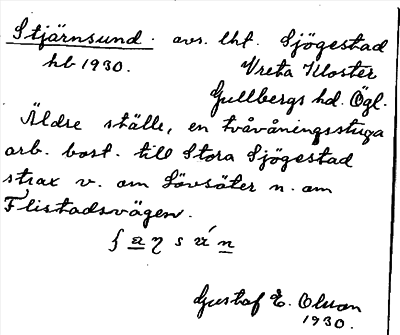 Stjärnsund. avs. lht. Sjögestad
hb 1930. Vreta Kloster
Gullbergs hd. Ögl.
Äldre ställe, en tvåvåningsstuga
arb. bost. till Stora Sjögestad
strax v. om Lövsäter n. om
Flistadsvägen.
Gustaf E. Olson
1930.